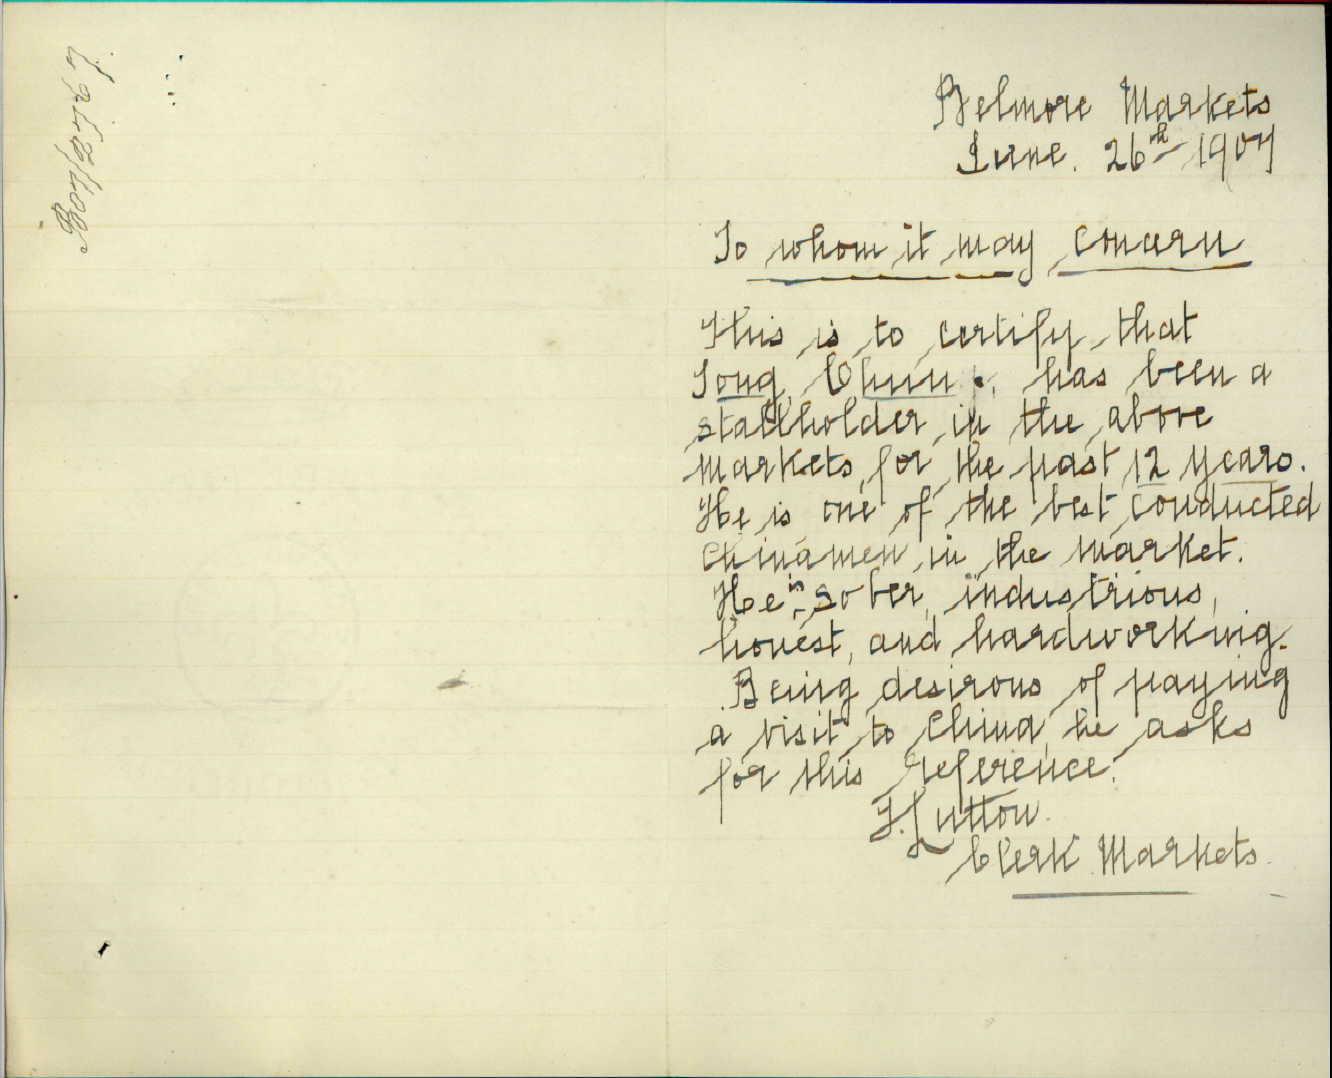 Belmore Markets
June. 26th 1907
To whom it may concern
This is to certify that
Tong Chun, has been a
stallholder in the above
markets, for the past 12 years.
He is one of the best conducted
Chinamen in the market.
He is sober, industrious,
honest, and hardworking.
Being desirous of paying
a visit to China, he asks
for this reference.
Lutton.
Clerk Markets